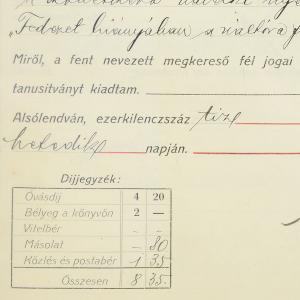 "Fedezet hiányában a váltóra f
Miről, a fent nevezett megkereső fél jogai
tanusitványt kiadtam.
Alsólendván, ezerkilenczszáz tize
hetedik napján.
Díjjegyzék:
Óvásdíj 4 20
Bélyeg a könyvön 2 —
Vitelbér - -
Másolat — 80
Közlés és postabér 1 35
Összesen 8 35.